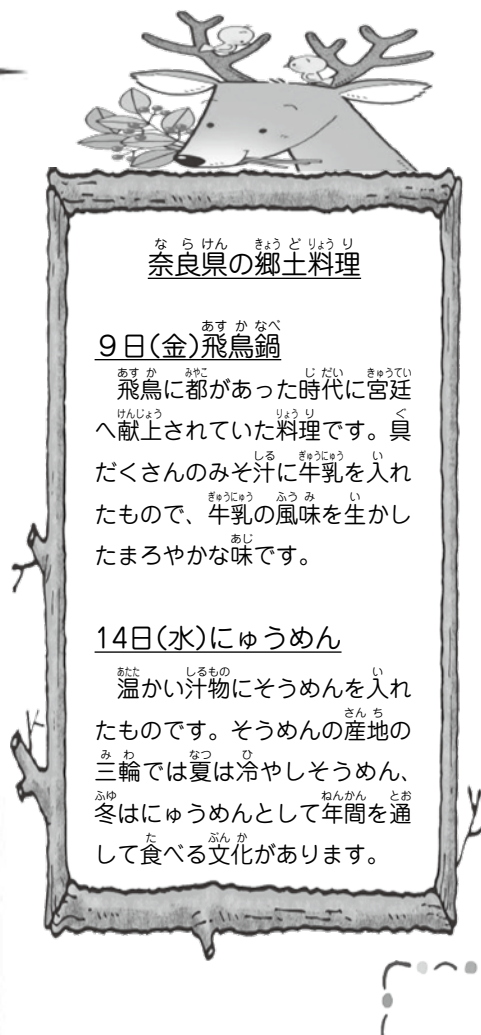 奈良県の郷土料理
9日(金)飛鳥鍋
飛鳥に都があった時代に宮廷
へ献上されていた料理です。具
だくさんのみそ汁に牛乳を入れ
たもので、牛乳の風味を生かし
たまろやかな味です。
14日(水)にゅうめん
温かい汁物にそうめんを入れ
たものです。そうめんの産地の
三輪では夏は冷やしそうめん、
冬はにゅうめんとして年間を通
して食べる文化があります。